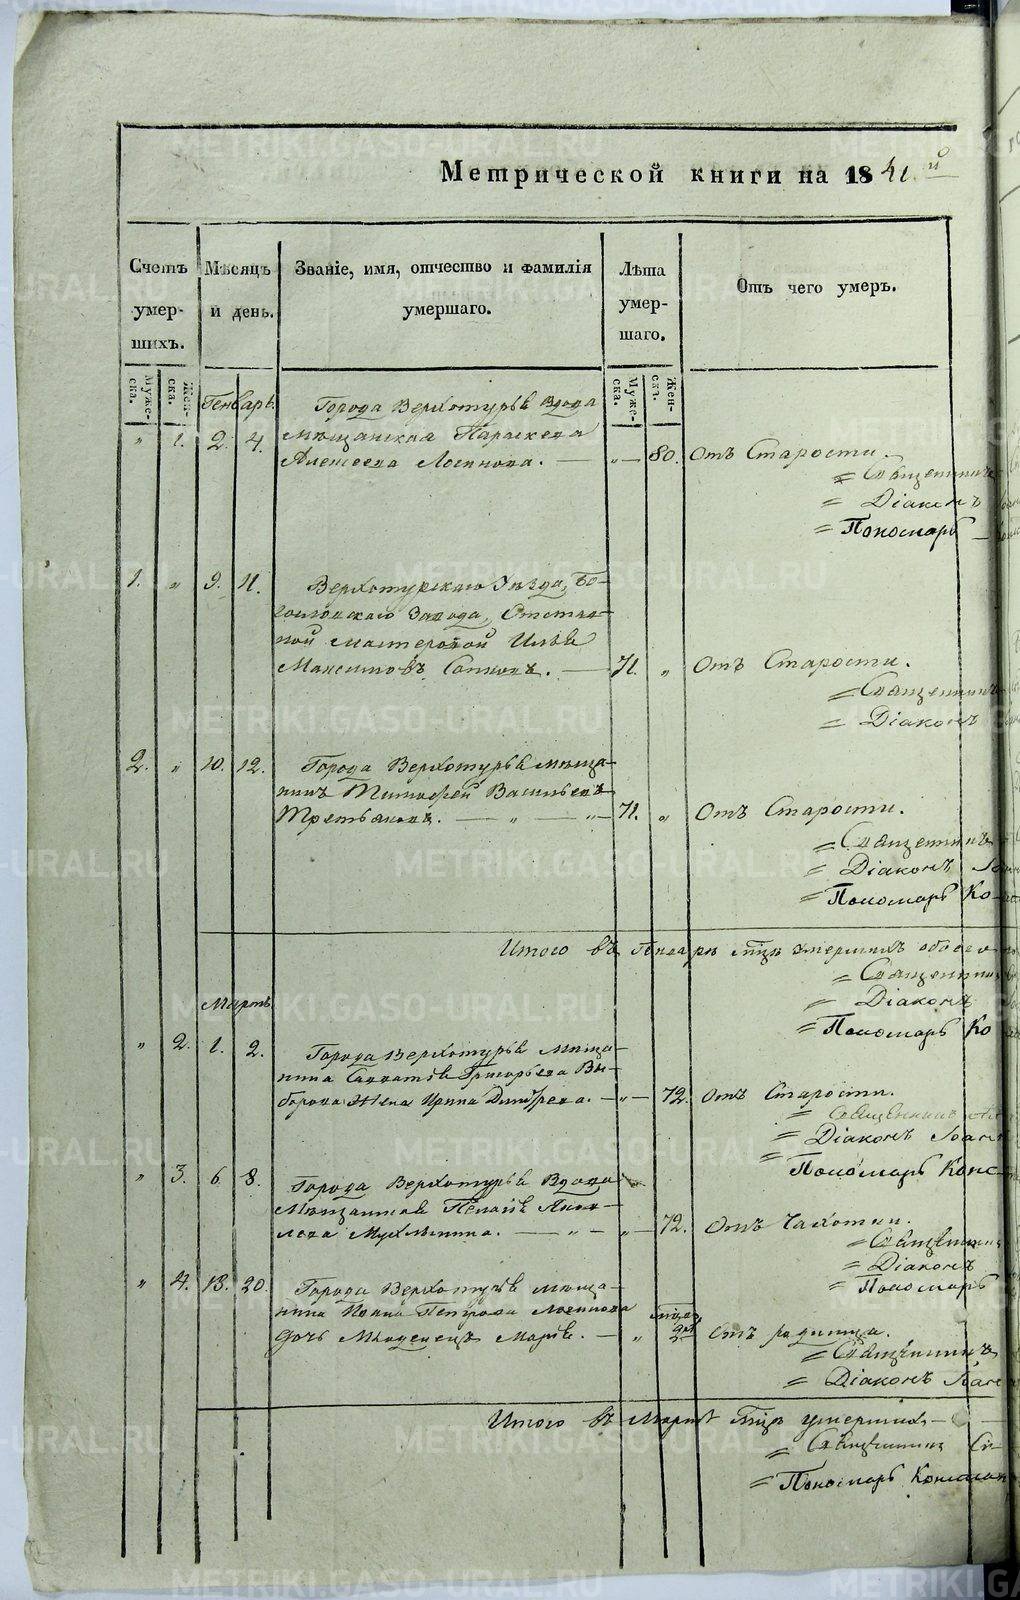 Метрической книги на 1841й
Счетъ умер- шихъ.
Мѣсяцъ и день.
Званіе, имя, отчество и фамилія умершаго.
Лѣта умер- шаго.
Отъ чего умеръ.
Муже- ска.
Жен- ска.
Муже- ска.
Жен- ска.
Генварь.
Города Верхотурья вдова
" 1. 2. 4. мѣщанская Параскева
Алексеева Логинова. — " — 80. Отъ Старости.
= Священникъ
= Діаконъ
= Пономарь
1. " 9. 11. Верхотурскаго Уѣзда, Бо-
гословскаго Завода, Отстав-
ной мастеровой Илья
Максимовъ. — 71. " Отъ Старости.
= Священникъ
= Діаконъ
2. " 10. 12. Города Верхотурья мѣща-
нинъ Тимофей Васильевъ
Третьяковъ. — " — " — 71. " Отъ Старости.
= Священникъ
= Діаконъ
= Пономарь Ко
Итого въ Генварѣ мцѣ умершихъ обоего
= Священникъ
= Діаконъ
= Пономарь Ко
Мартъ
" 2. 1. 2. Города Верхотурья мѣща-
нина Григорьева Вы-
борова жена Ирина Димитрева. — " — 72. Отъ Старости.
= Священникъ
= Діаконъ Іоанн
= Пономарь Конс
" 3. 6. 8. Города Верхотурья Вдова
Мѣщанская Пелагія
— " — " — 72. Отъ Чахотки.
= Священникъ
= Діаконъ
= Пономарь
" 4. 18. 20. Города Верхотурья мѣща-
нина Ивана Петрова Логинова
дочь Младенецъ Марія. — " Отъ родимца.
= Священникъ
= Діаконъ
Итого въ Мартѣ мцѣ умершихъ —
= Священникъ
= Пономарь Констан
METRIKI.GASO-URAL.RU